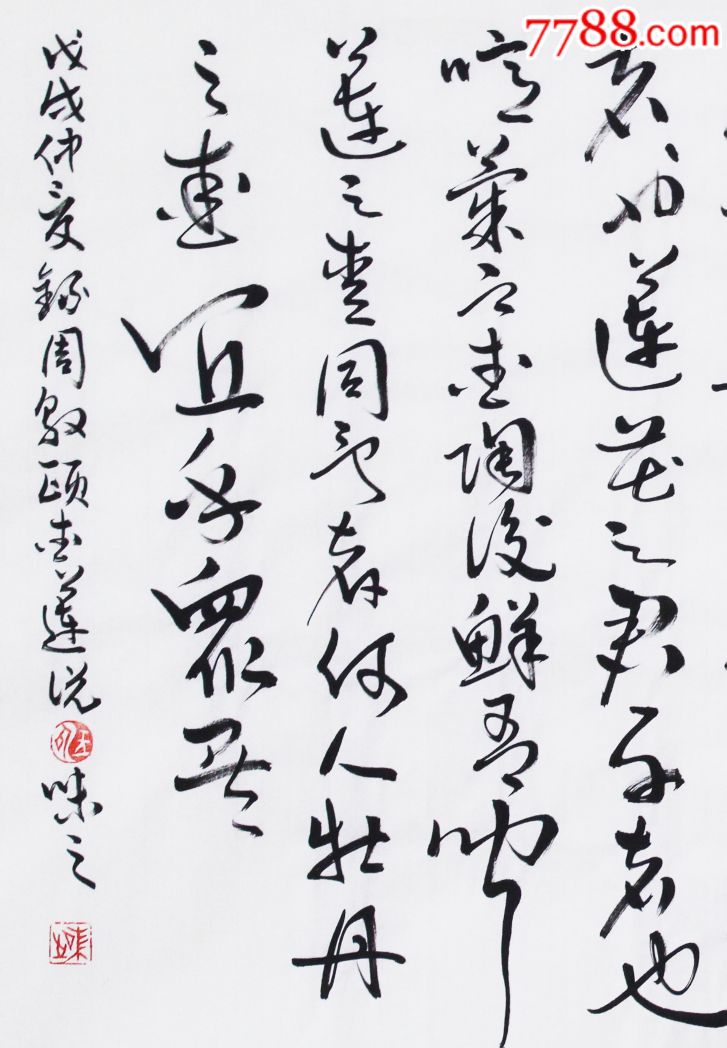 7788.com
者也蓮花之君子者也
噫菊之愛陶後鮮有聞
蓮之愛同予者何人牡丹
之愛宜乎眾矣
戊戌仲夏錄周敦頤愛蓮說 味之